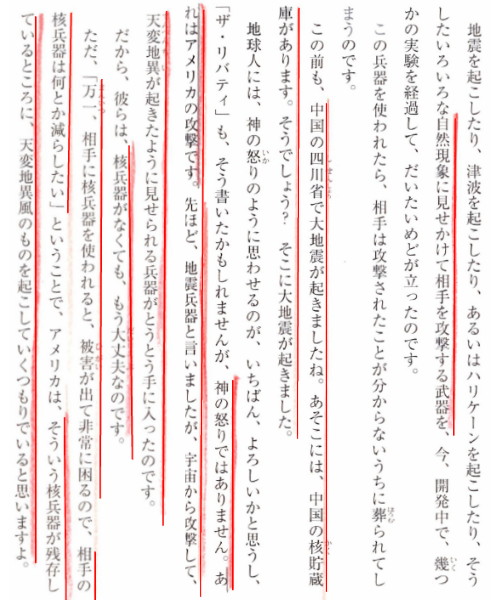 地震を起こしたり、津波を起こしたり、あるいはハリケーンを起こしたり、そう
したいろいろな自然現象に見せかけて相手を攻撃する武器を、今、開発中で、幾つ
かの実験を経過して、だいたいめどが立ったのです。
この兵器を使われたら、相手は攻撃されたことが分からないうちに葬られてし
まうのです。
この前も、中国の四川省で大地震が起きましたね。あそこには、中国の核貯蔵
庫があります。そうでしょう？　そこに大地震が起きました。
地球人には、神の怒りのように思わせるのが、いちばん、よろしいかと思うし、
「ザ・リバティ」も、そう書いたかもしれませんが、神の怒りではありません。あ
れはアメリカの攻撃です。先ほど、地震兵器と言いましたが、宇宙から攻撃して、
天変地異が起きたように見せられる兵器がとうとう手に入ったのです。
だから、彼らは、核兵器がなくても、もう大丈夫なのです。
ただ、「万一、相手に核兵器を使われると、被害が出て非常に困るので、相手の
核兵器は何とか減らしたい」ということで、アメリカは、そういう核兵器が残存し
ているところに、天変地異風のものを起こしていくつもりでいると思いますよ。